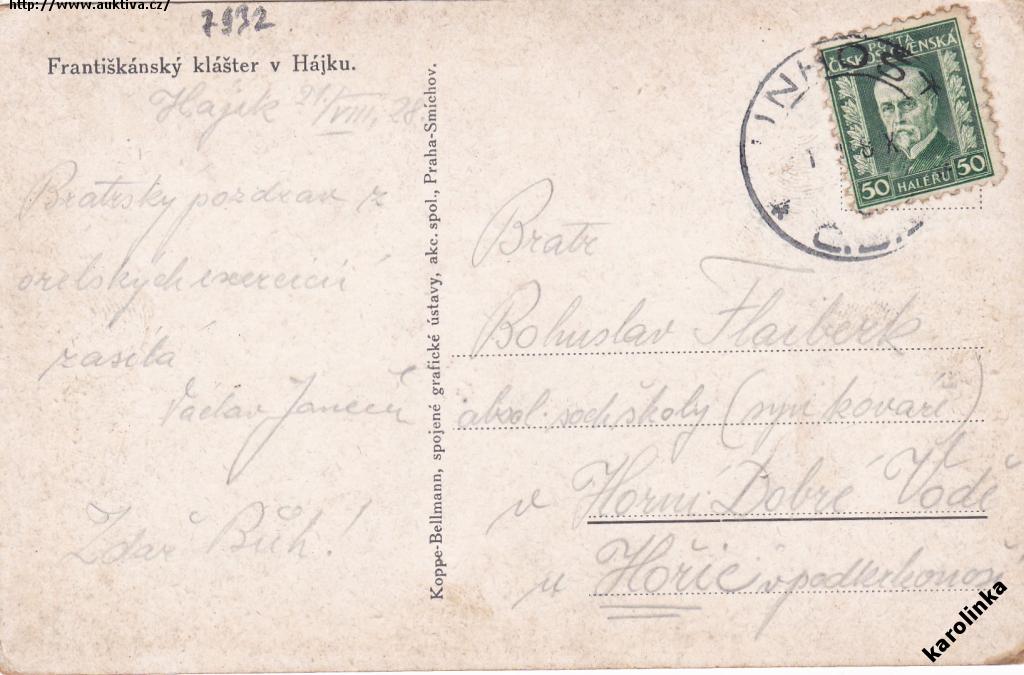 http://www.auktiva.cz/
7932
Františkánský klášter v Hájku.
Hájek 21/VIII, 28.
Bratrský pozdrav z
orelských exercicií
zasílá
Václav
Zdař Bůh!
Koppe-Bellmann, spojené grafické ústavy, akc. spol., Praha-Smíchov.
POŠTA
ČESKOSLOVENSKÁ
50 HALÉŘŮ 50
UNHOŠŤ
Č.S.
Bratr
Bohuslav Flaiberk
absol. soch školy (syn kováře)
v Horní Dobré Vodě
u Hořic v podkrkonoší
karolinka